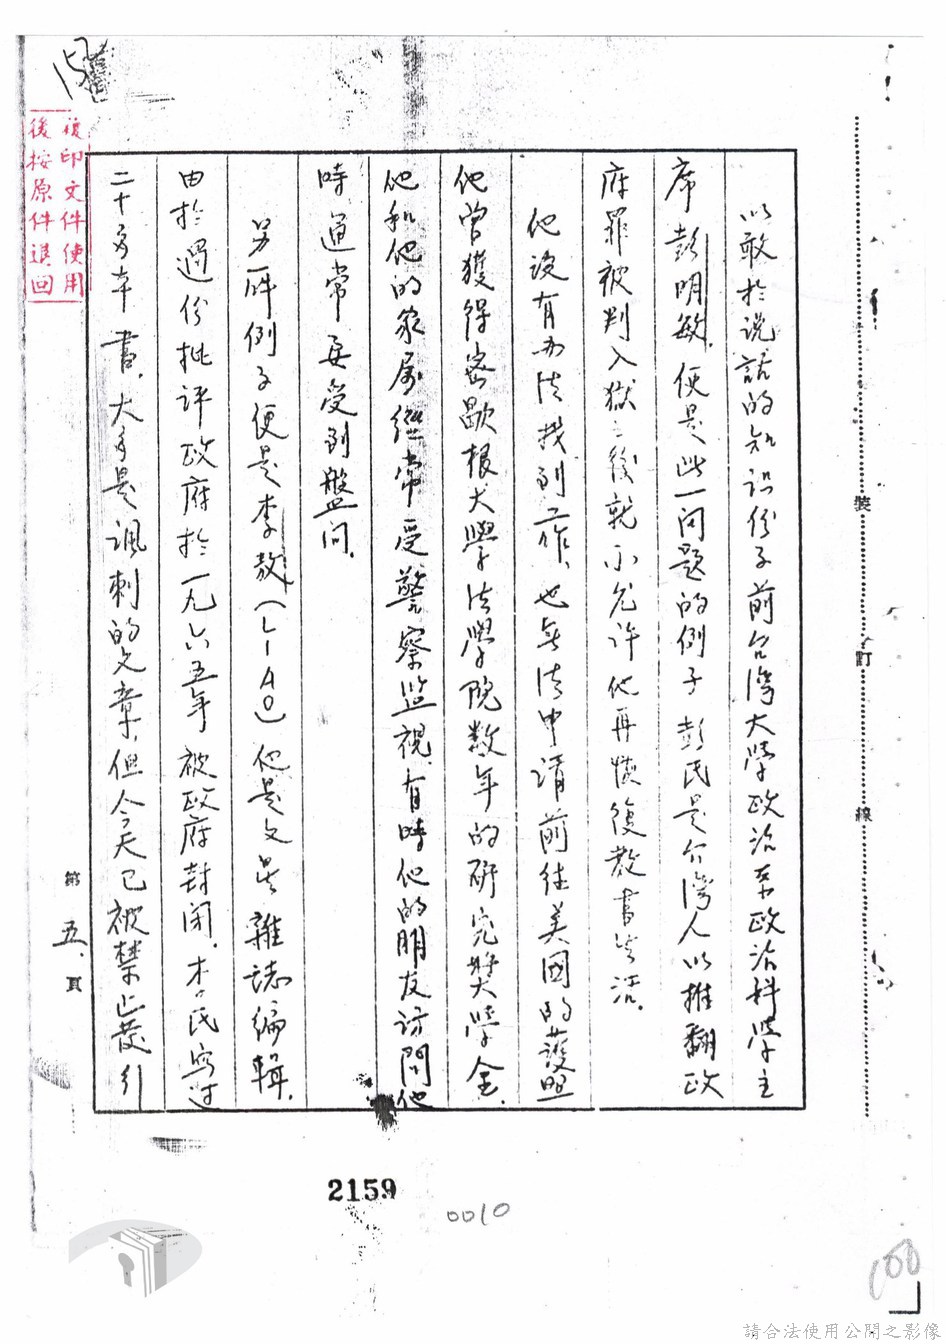 以敢於说話的知识份子前台湾大学政治系政治科学主
席彭明敏,便是此一问题的例子彭氏是台湾人以推翻政
府罪被判入獄之後就不允许他再恢復教書生活.
他没有办法找到工作,也無法申请前往美國的護照
他曾獲得密歇根大學法學院数年的研究奖學金.
他和他的家屬經常受警察监視有時他的朋友访問他
時通常要受到盤问.
另一件例子便是李敖(LIAO)他是文星雜誌編輯.
由於過份批評政府於一九六五年被政府封闭.李氏写过
二十多本書.大多是讽刺的文章,但今天已被禁止發引
第五.頁
複印文件使用
後按原件退回
裝
訂
線
2159
0010
100
請合法使用公開之影像